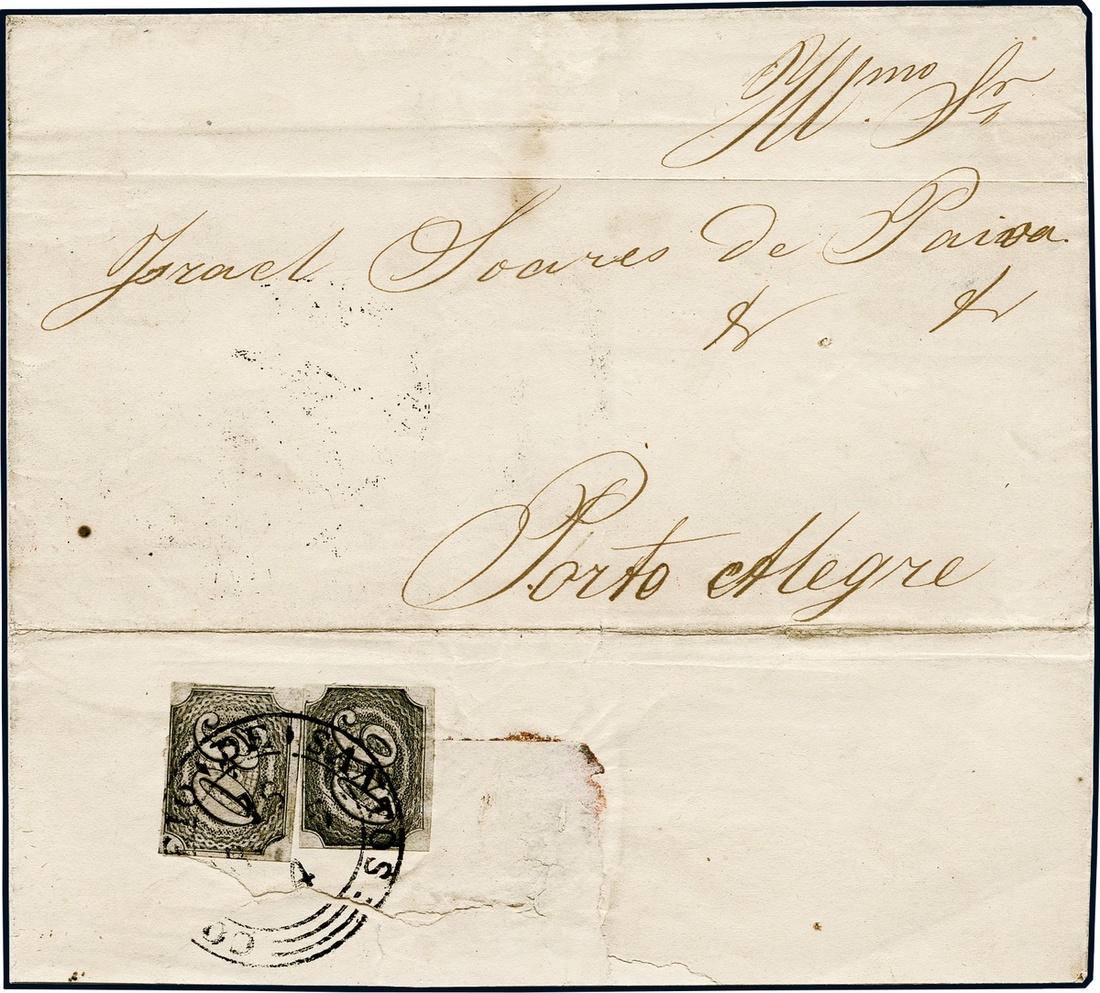 Illmo. Sr.
Israel Soares de Paiva.
Porto Alegre
DE SANTOS